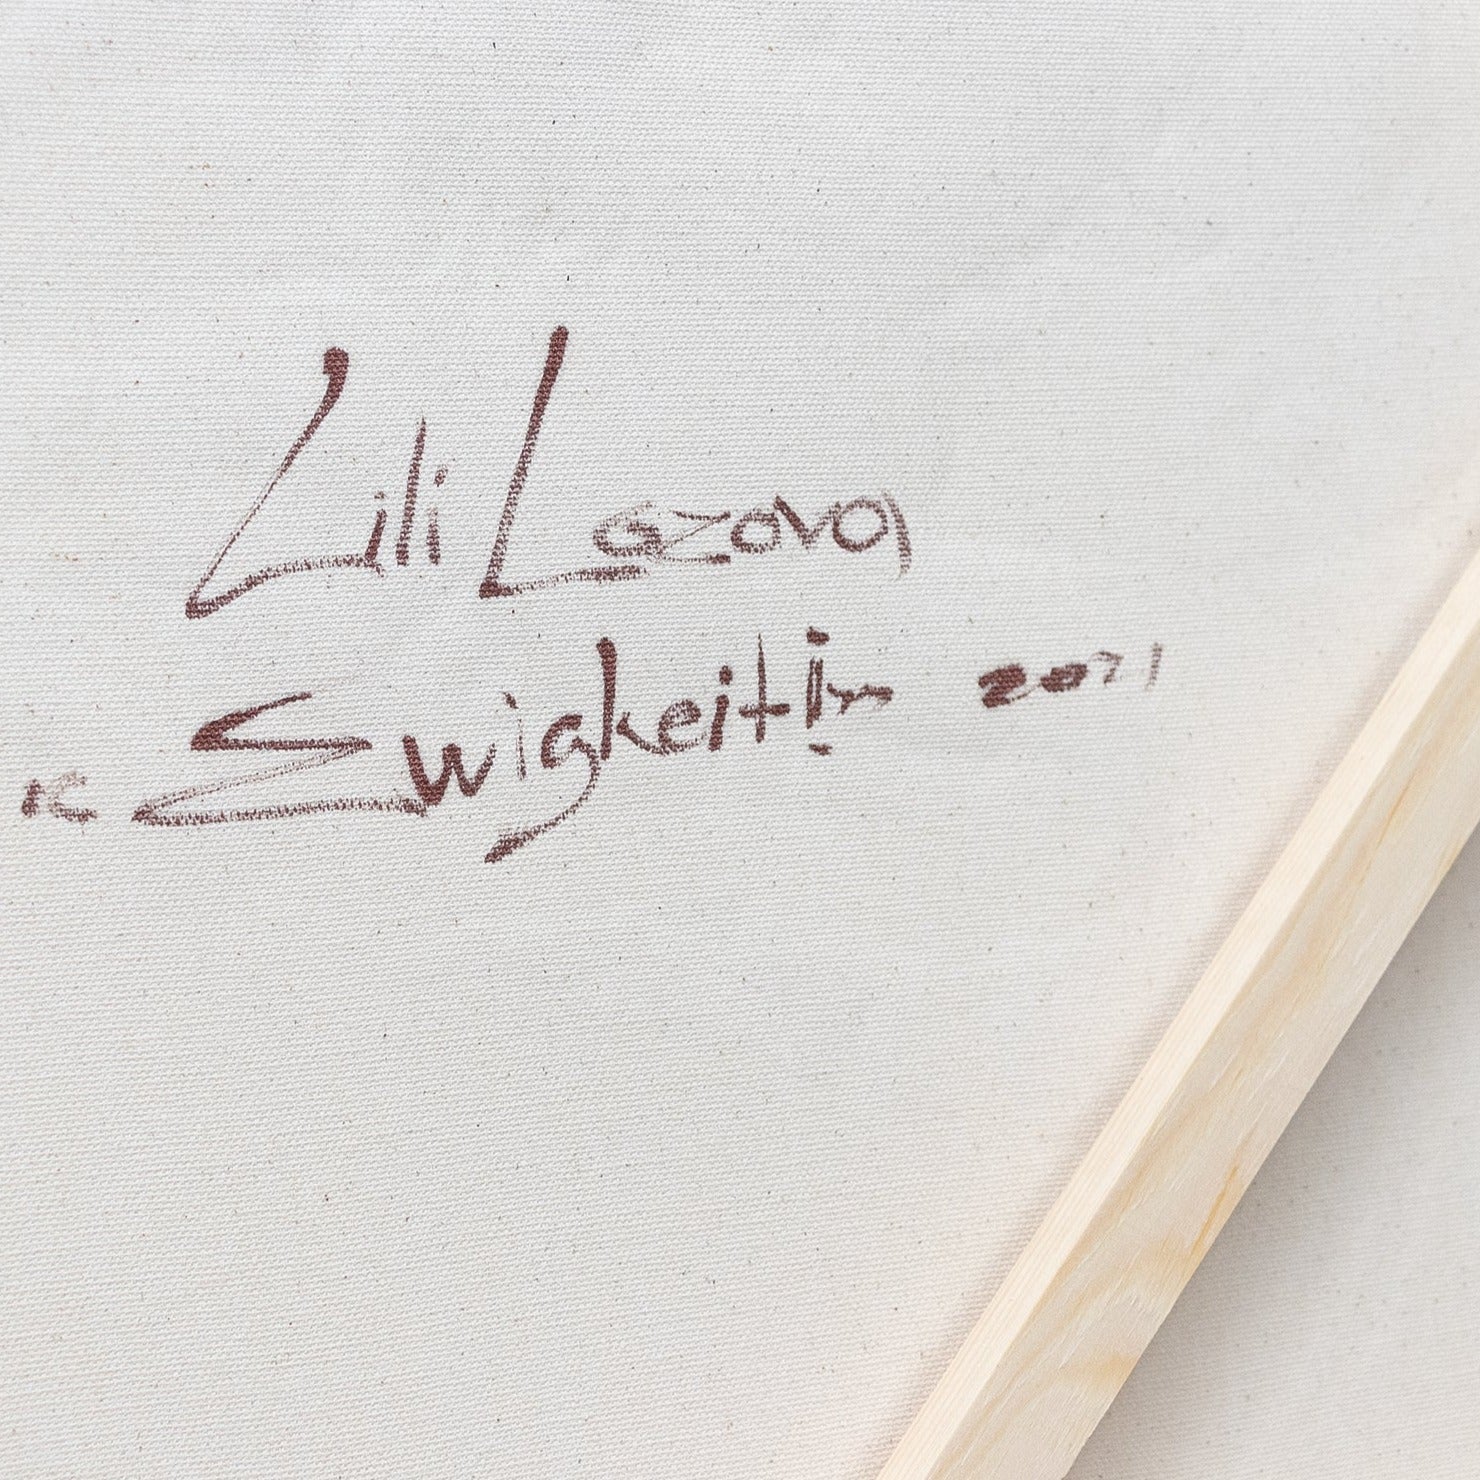 Lili Lazova
"Ewigkeit I" 2021